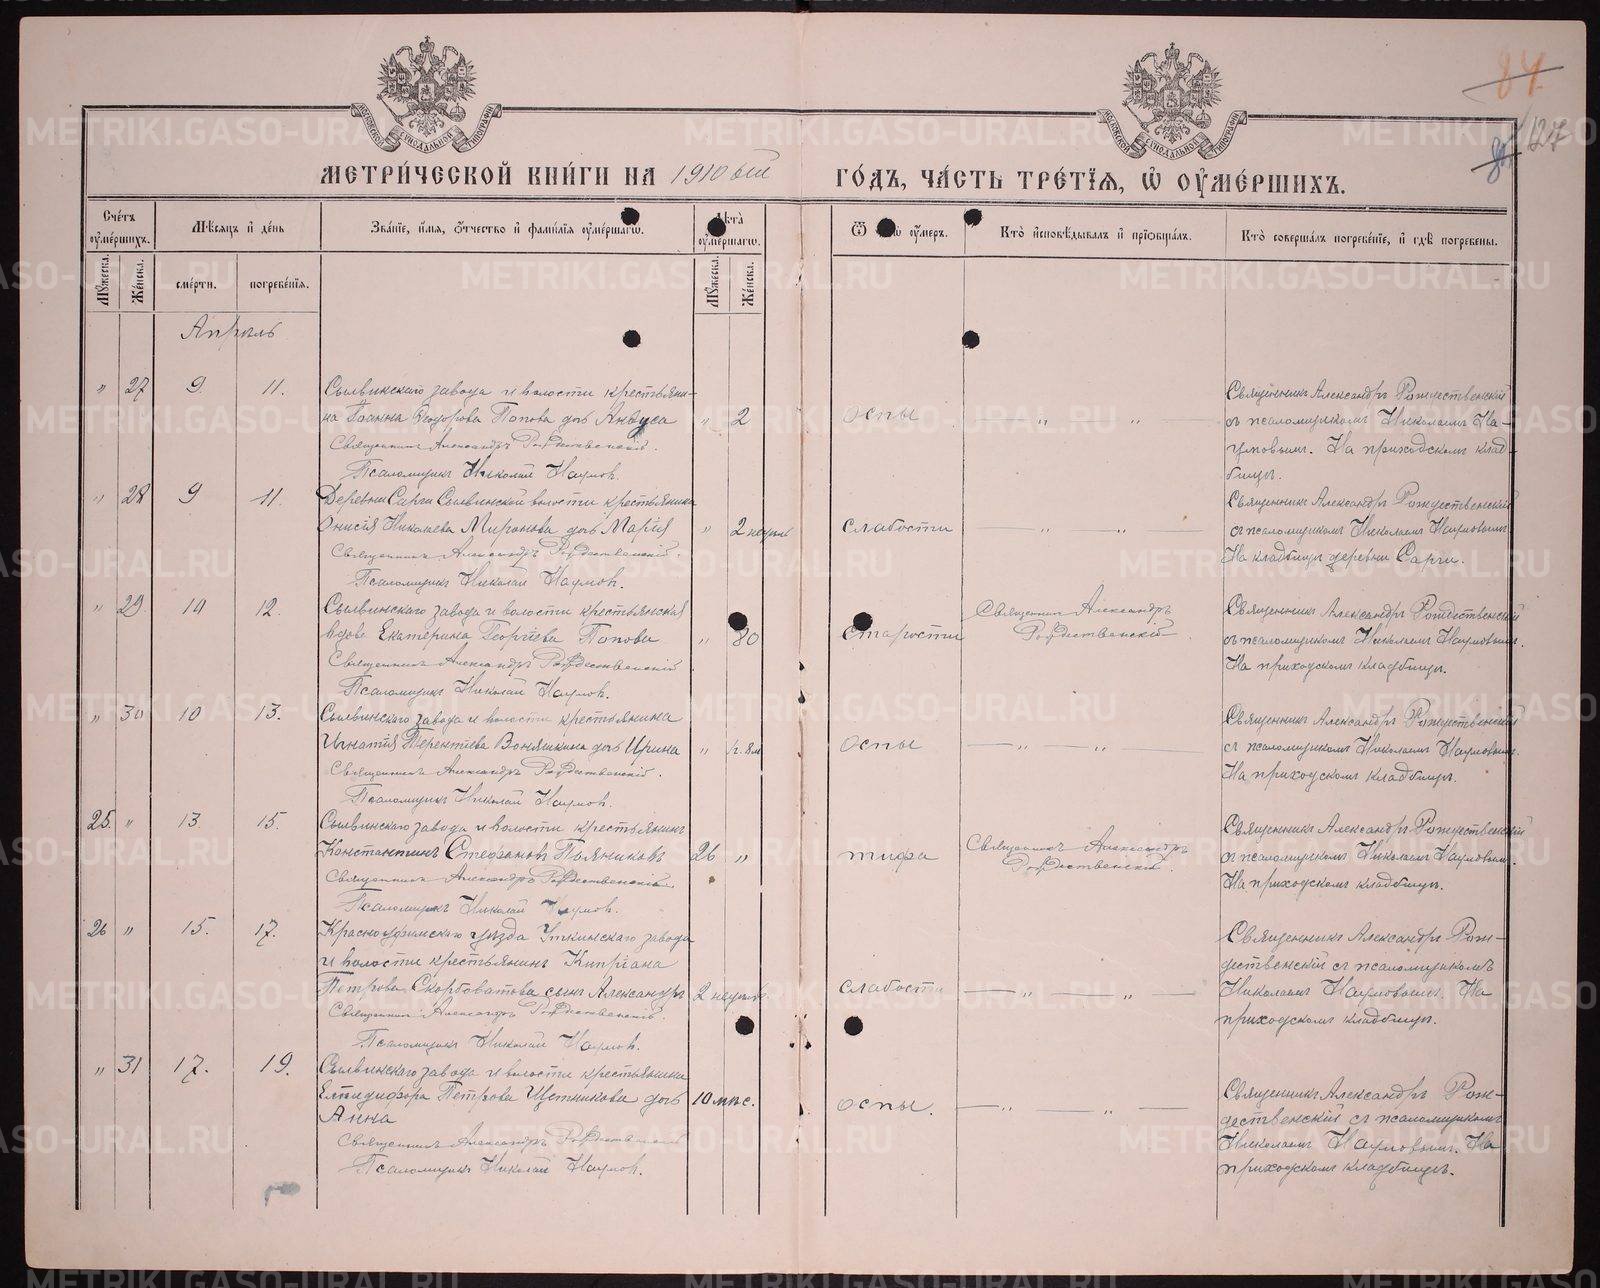 84.
85
127
МЕТРИ́ЧЕСКОЙ КНИ́ГИ НА 1910 ый ГО́ДЪ, ЧА́СТЬ ТРЕ́ТЇѦ, Ѡ ОУ҆МЕ́РШИХЪ.
Сче́тъ оу҆ме́ршихъ.
Мꙋ́жеска.
Же́нска.
Мѣ́сяцъ и҆ де́нь
сме́рти.
погребе́нїя.
Зва́нїе, и҆́мя, ѻ҆́тчество и҆ фами́лїя оу҆ме́ршагѡ.
Лѣта̀ оу҆ме́ршагѡ.
Мꙋ́жеска.
Же́нска.
Ѿ оу҆́меръ.
Кто̀ и҆сповѣ́дывалъ и҆ прїѡбща́лъ.
Кто̀ соверша́лъ погребе́нїе, и҆ гдѣ̀ погребены.
Апрѣль
" 27 9 11. Сылвинскаго завода и волости крестьяни-
на Іоанна Ѳеодорова Попова дочь Анѳуса " 2 оспы " "
Священникъ Александръ Рождественскій.
Псаломщикъ Николай Наумов.
Священникъ Александръ Рождественскій
съ псаломщикомъ Николаемъ На-
умовымъ. На приходскомъ клад-
бищѣ.
" 28 9 11. Деревни Сарги Сылвинской волости крестьянина
Онисія Николаева Миронова дочь Марія " 2 недѣли слабости " "
Священникъ Александръ Рождественскій.
Псаломщикъ Николай Наумов.
Священникъ Александръ Рождественскій
съ псаломщикомъ Николаемъ Наумовымъ
На кладбищѣ деревни Сарги.
" 29. 10 12. Сылвинскаго завода и волости крестьянская
вдова Екатерина Георгіева Попова " 80 старости
Священникъ Александръ Рождественскій
Псаломщикъ Николай Наумов.
Священникъ Александръ
Рождественскій
Священникъ Александръ Рождественскій
съ псаломщикомъ Николаемъ Наумовымъ.
На приходскомъ кладбищѣ.
" 30 10 13. Сылвинскаго завода и волости крестьянина
Игнатія Терентіева дочь Ирина " оспы " "
Священникъ Александръ Рождественскій.
Псаломщикъ Николай Наумов.
Священникъ Александръ Рождественскій
съ псаломщикомъ Николаемъ Наумовымъ.
На приходскомъ кладбищѣ.
25. " 13. 15. Сылвинскаго завода и волости крестьянинъ
Константинъ Стефановъ 26 " тифа
Священникъ Александръ Рождественскій.
Псаломщикъ Николай Наумов.
Священникъ Александръ
Рождественскій.
Священникъ Александръ Рождественскій
съ псаломщикомъ Николаемъ Наумовым.
На приходскомъ кладбищѣ.
26 " 15. 17. Красноуфимскаго уѣзда Уткинскаго завода
и волости крестьянинъ Кипріана
Петрова Скорбоватова сынъ Александръ 2 недѣли слабости " "
Священникъ Александръ Рождественскій.
Псаломщикъ Николай Наумов.
Священникъ Александръ Рож-
дественскій съ псаломщикомъ
Николаемъ Наумовымъ. На
приходскомъ кладбищѣ.
" 31 17. 19. Сылвинскаго завода и волости крестьянина
Елпидифора Петрова Щетникова дочь 10 мѣс. оспы. " "
Анна
Священникъ Александръ Рождественскій
Псаломщикъ Николай Наумов.
Священникъ Александръ Рож-
дественскій съ псаломщикомъ
Николаемъ Наумовымъ. На
приходскомъ кладбищѣ.
METRIKI.GASO-URAL.RU